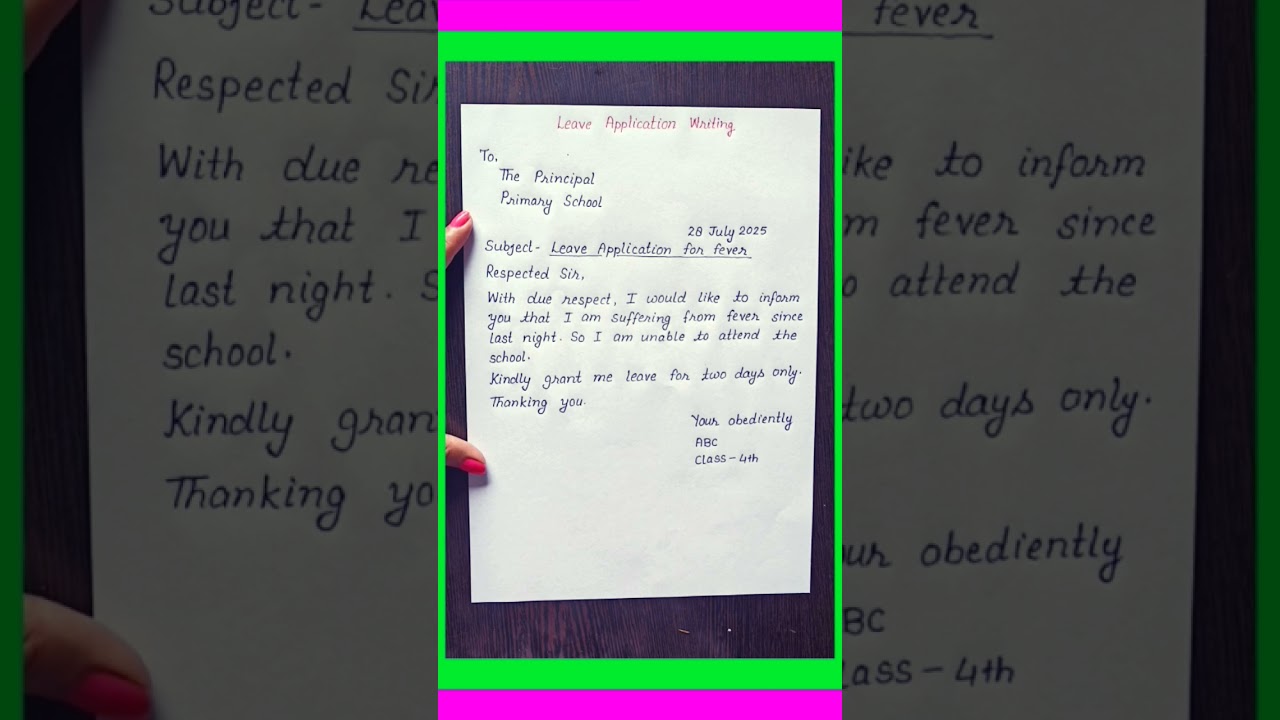 Leave Application Writing
To,
The Principal
Primary School
28 July 2025
Subject- Leave Application for fever
Respected Sir,
With due respect, I would like to inform
you that I am suffering from fever since
last night. So I am unable to attend the
school.
Kindly grant me leave for two days only.
Thanking you.
Your obediently
ABC
Class-4th